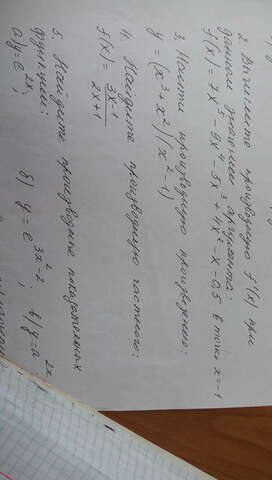 2. Вычислите производную f'(x) при
данном значении аргумента:
f(x) = 7x⁵ - 9x⁴ - 3x³ + 4x² - x - 0,5 в точке x = -1
3. Найти производную произведения:
y = (x³ + x²)(x² - 1)
4. Найдите производную частного:
f(x) = 3x - 1 / 2x + 1
5. Найдите производные показательных
функций:
а) y = e²ˣ; б) y = e³ˣ⁻²; в) y = a²ˣ